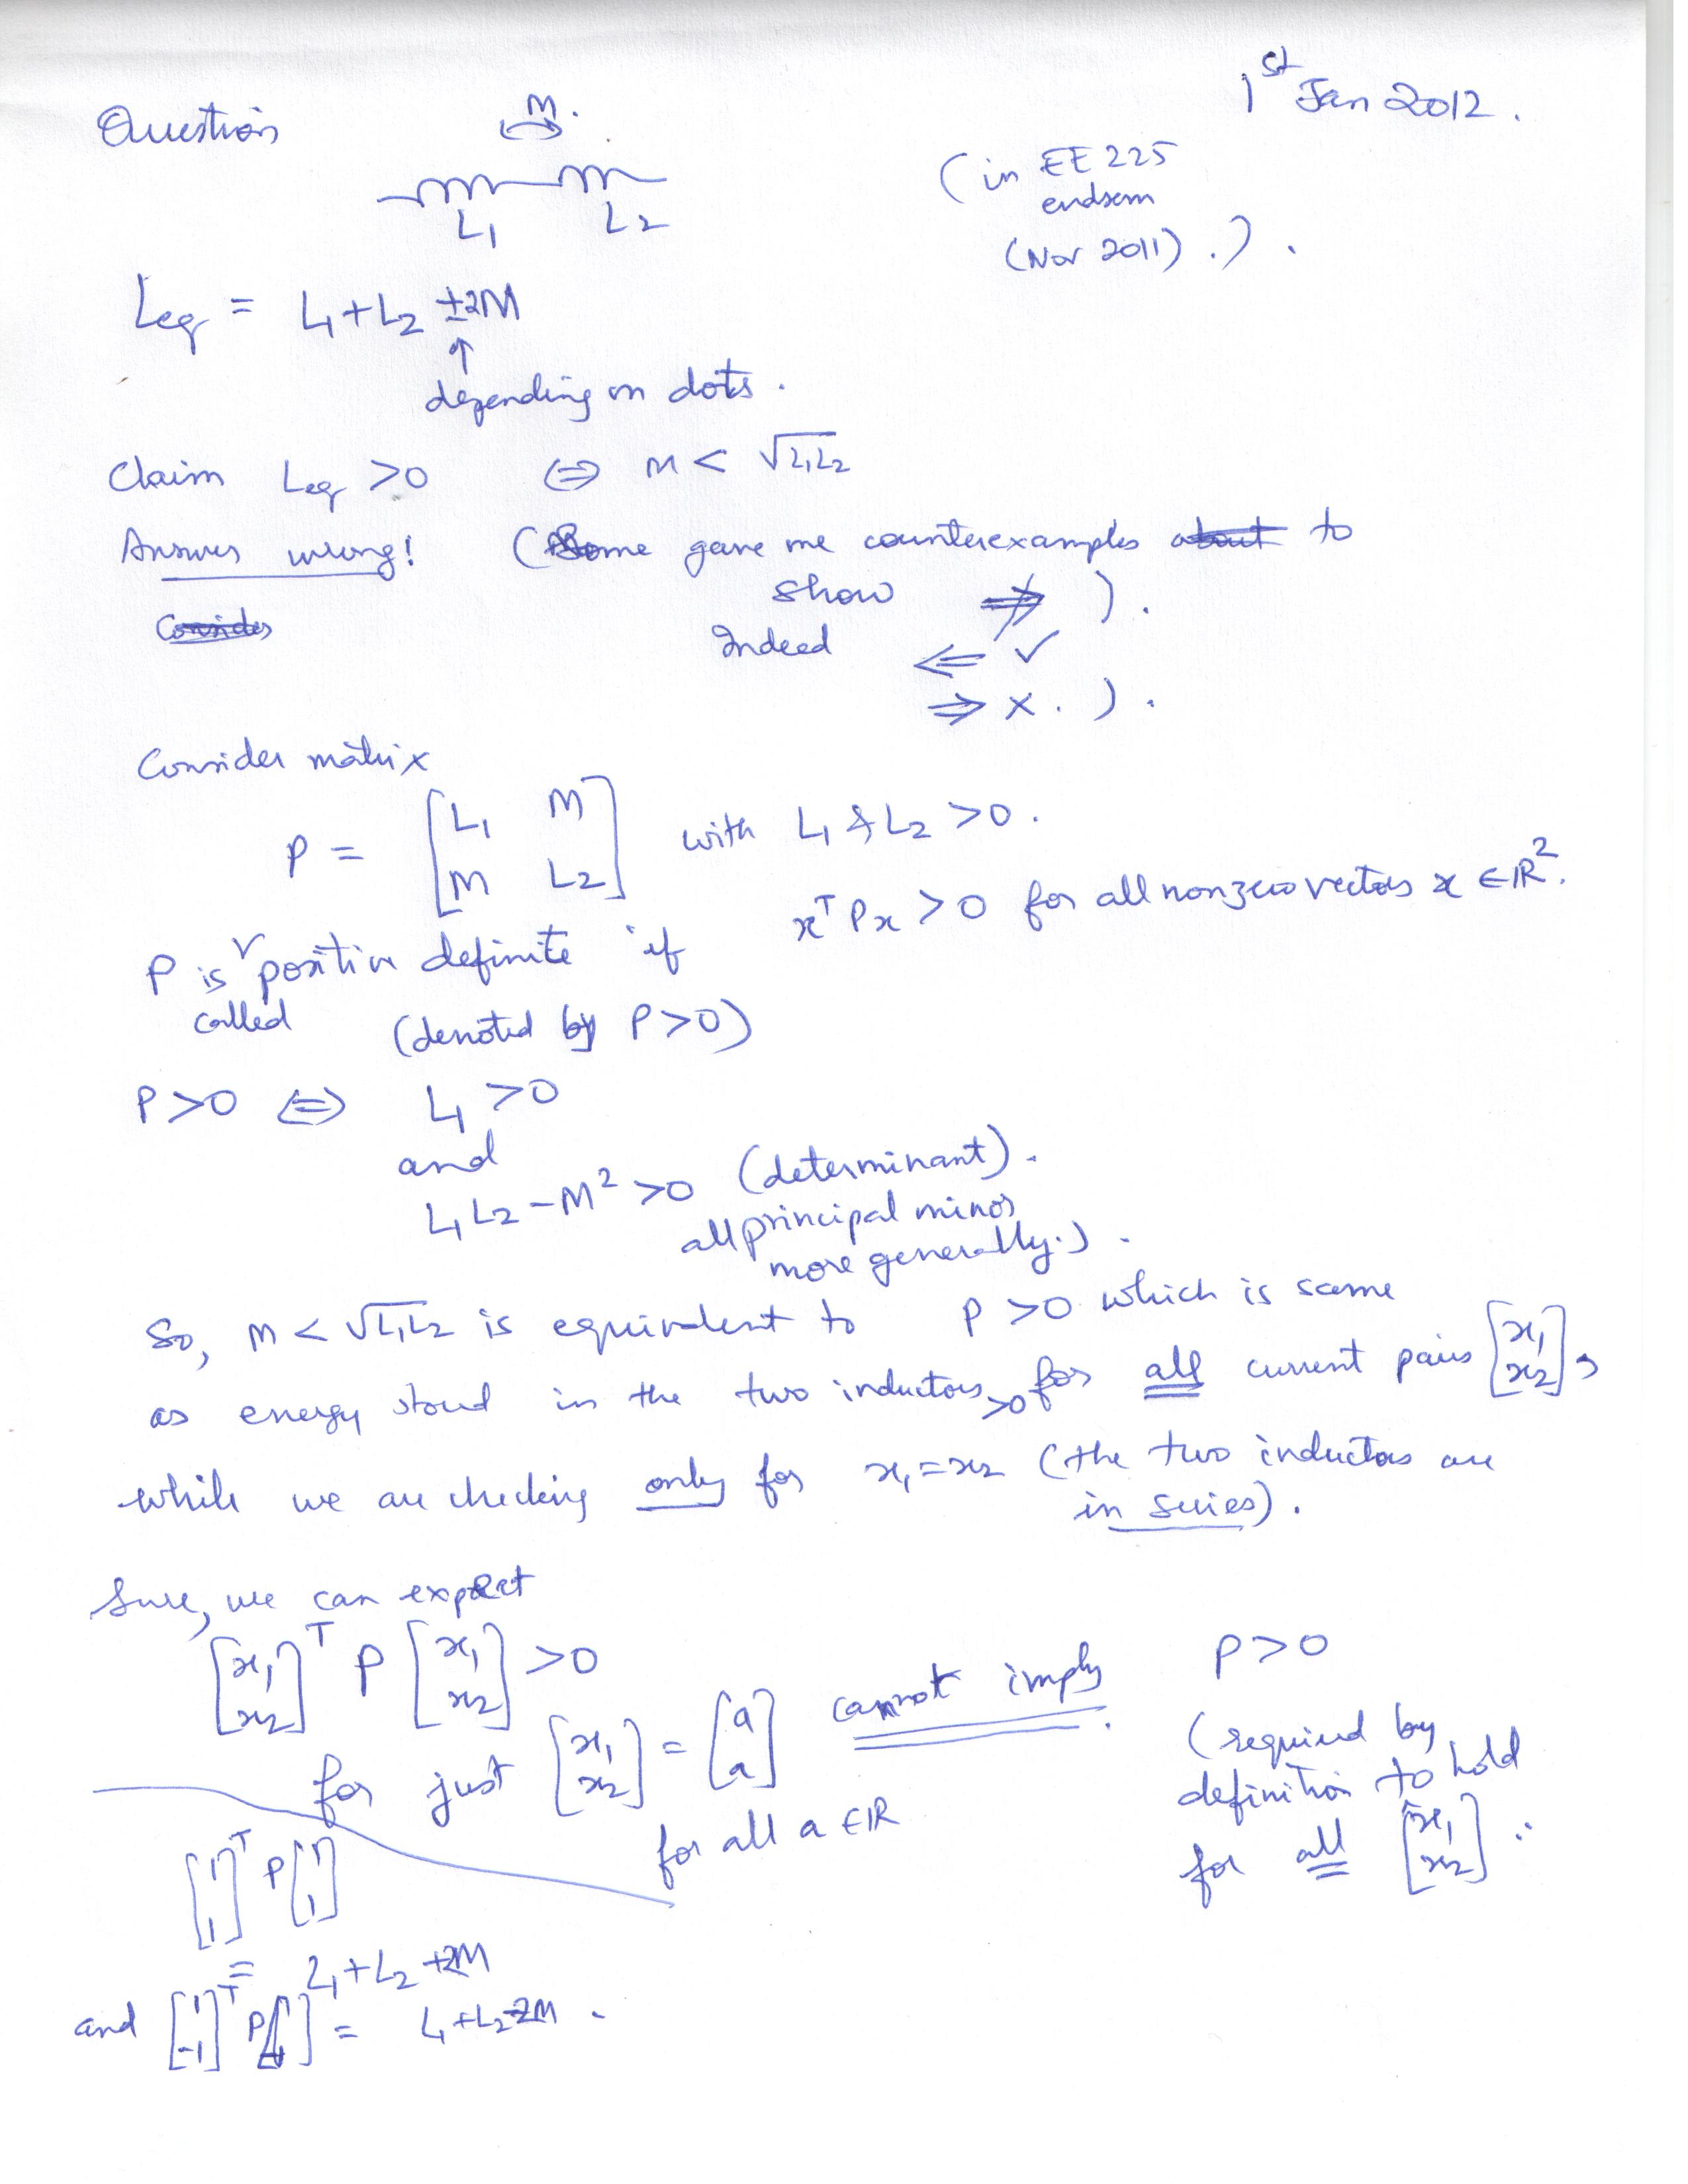 1st Jan 2012.
Question
M.
(in EE 225
endsem
(Nov 2011).).
L1 L2
Leq = L1+L2 ±2M
↑
depending on dots.
Claim Leq >0 ⇔ M < √L1L2
Answer wrong! (Some gave me counterexamples about to
show ⇏ ).
Consider
Indeed ⇐ ✓
⇒ x. ).
Consider matrix
P = [L1 M; M L2] with L1 & L2 >0.
P is called positive definite if xᵀPx >0 for all nonzero vectors x ∈ ℝ².
(denoted by P>0)
P>0 ⇔ L1 >0
and
L1L2-M² >0 (determinant).
all principal minor
more generally.).
So, M < √L1L2 is equivalent to P >0 which is same
as energy stored in the two inductors >0 for all current pairs [x1; x2],
while we are checking only for x1=x2 (the two inductors are
in series).
Sure, we can expect
[x1; x2]ᵀ P [x1; x2] >0
for just [x1; x2] = [a; a]
for all a ∈ ℝ
cannot imply.
P>0
(required by
definition to hold
for all [x1; x2] ..
[1; 1]ᵀ P [1; 1]
= L1+L2 +2M
and [1; -1]ᵀ P [1; -1] = L1+L2-2M.